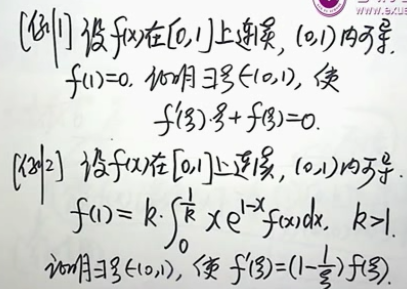 [例1] 设f(x)在[0,1]上连续, (0,1)内可导.
f(1)=0. 证明∃ξ∈(0,1), 使
f'(ξ)·ξ+f(ξ)=0.
[例2] 设f(x)在[0,1]上连续, (0,1)内可导.
f(1)=k·∫₀^{1/k} xe^{1-x}f(x)dx, k>1.
证明∃ξ∈(0,1), 使 f'(ξ)=(1-1/ξ)f(ξ).